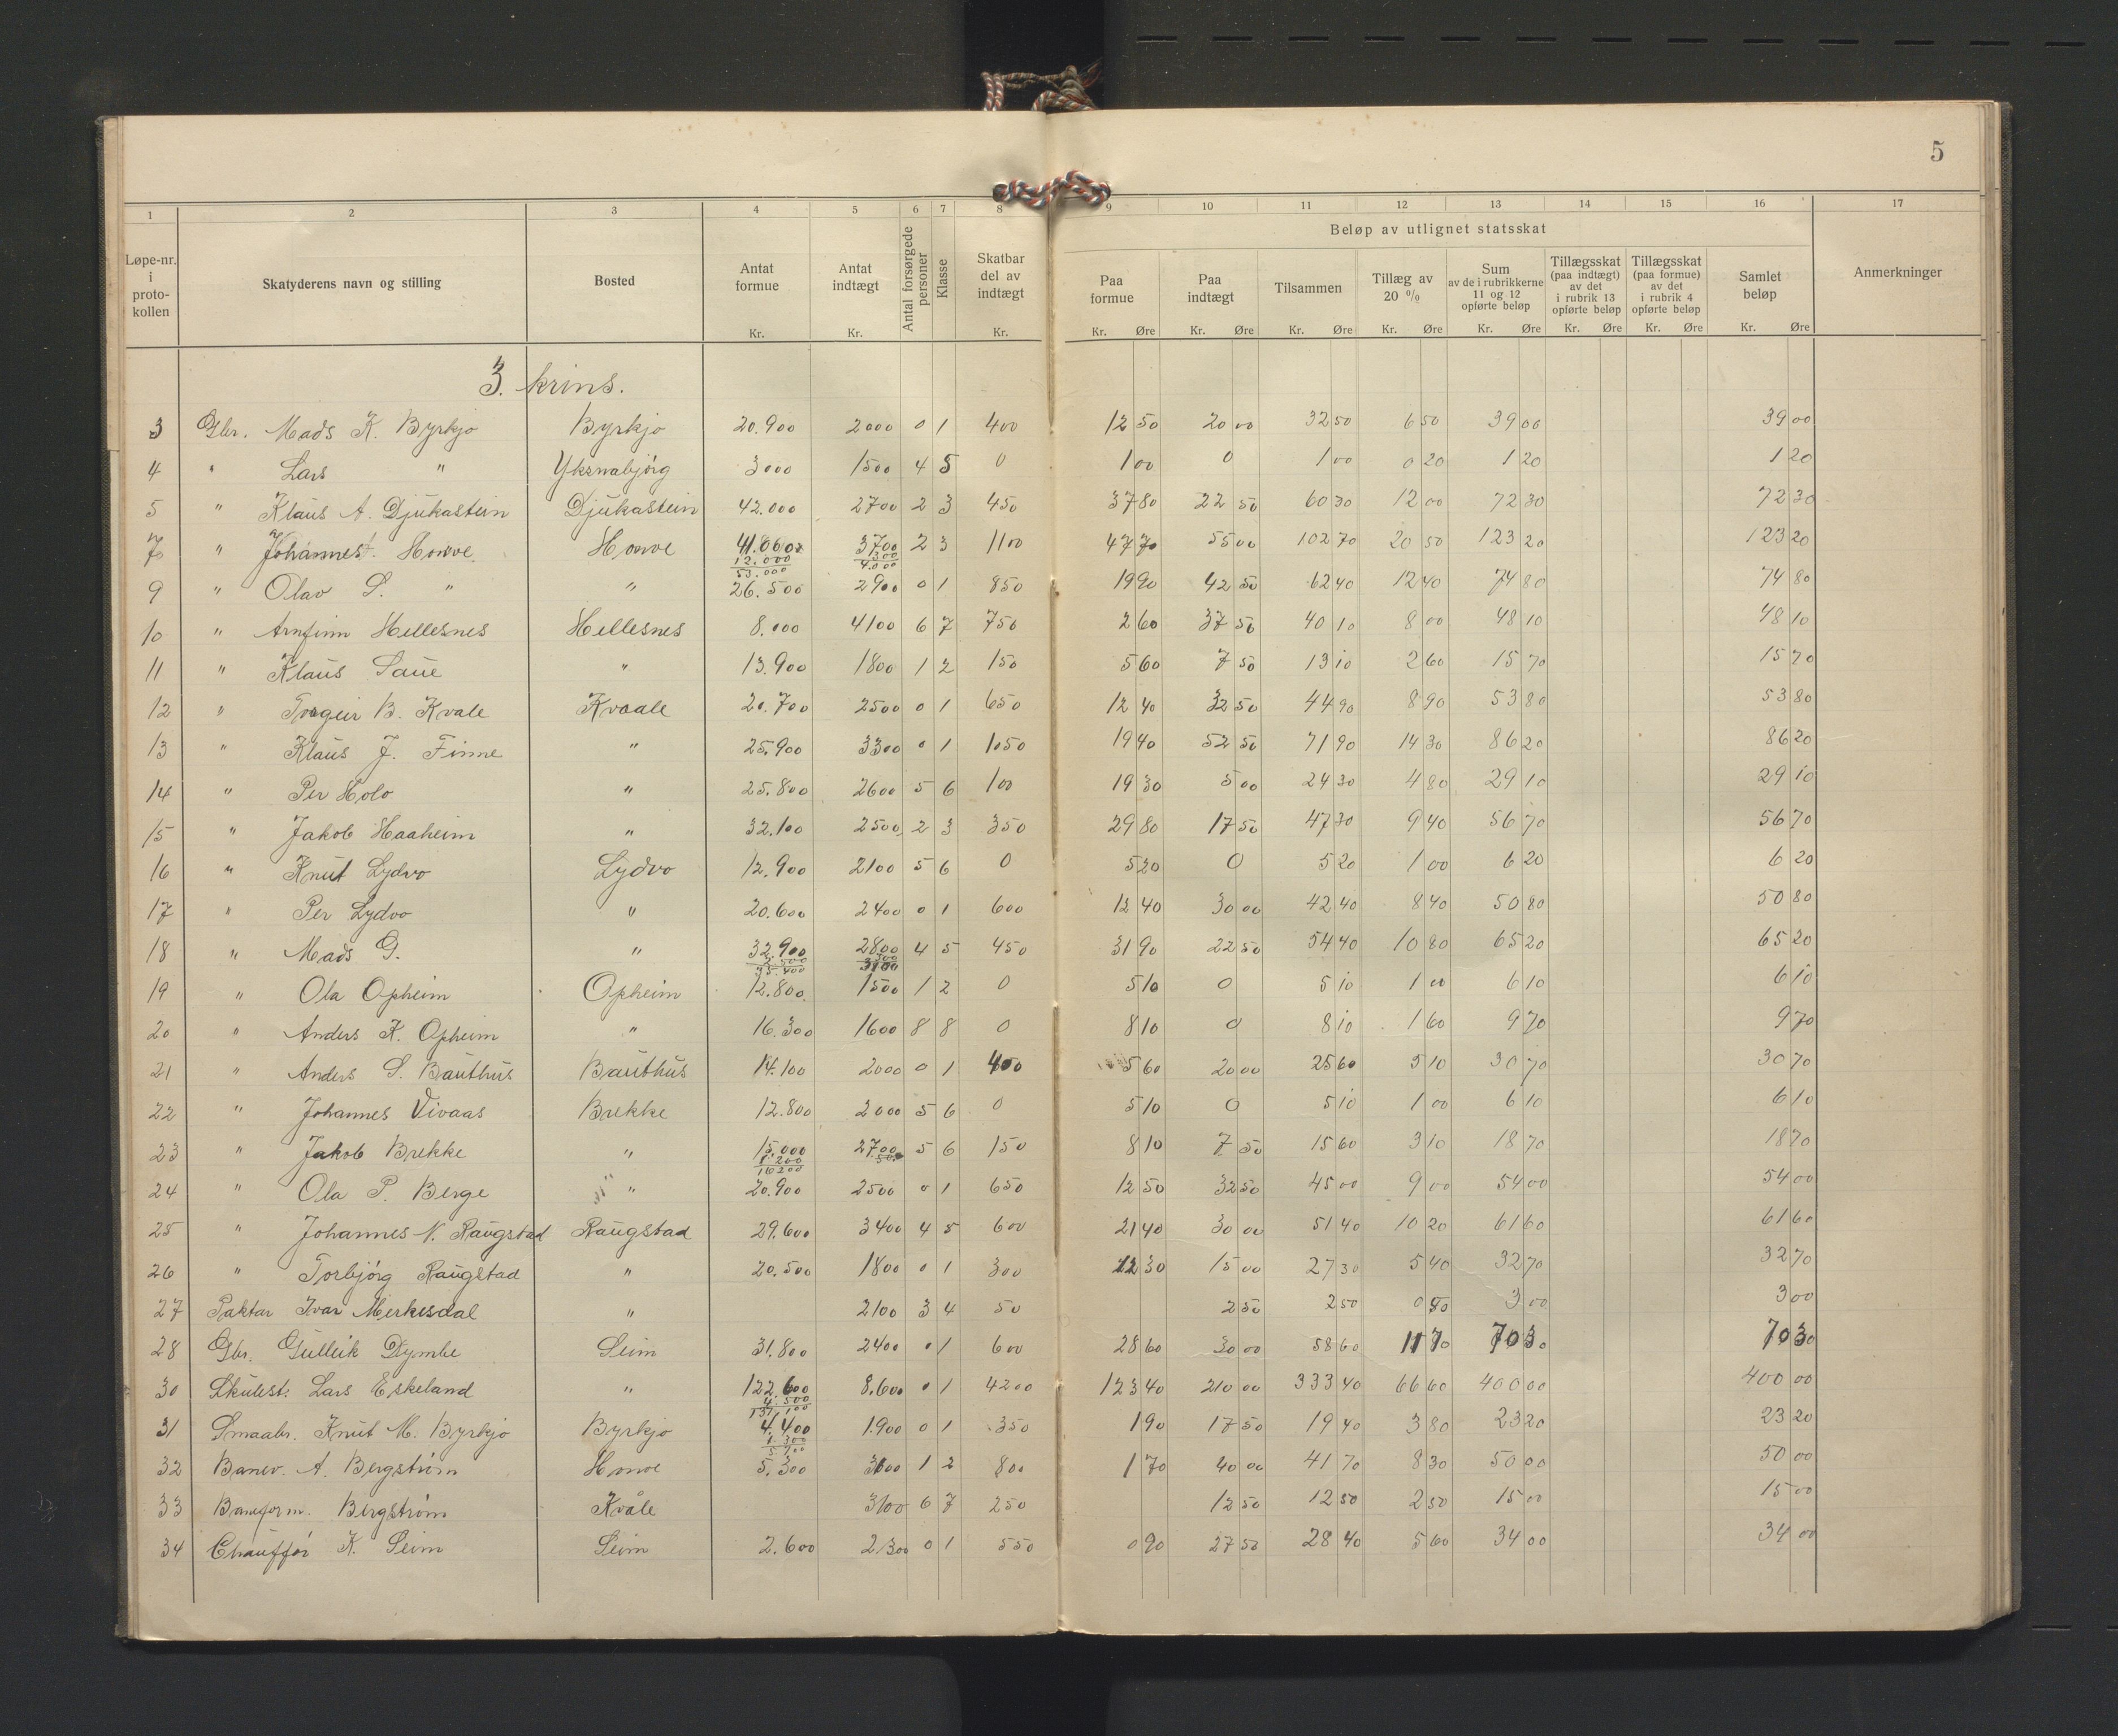 5
1 2 3 4 5 6 7 8 9 10 11 12 13 14 15 16 17
Beløp av utlignet statsskat
Løpe-nr. i proto-kollen
Skatyderens navn og stilling
Bosted
Antat formue Kr.
Antat indtægt Kr.
Antal forsørgede personer
Klasse
Skatbar del av indtægt Kr.
Paa formue Kr. Øre
Paa indtægt Kr. Øre
Tilsammen Kr. Øre
Tillæg av 20 % Kr. Øre
Sum av de i rubrikkerne 11 og 12 opførte beløp Kr. Øre
Tillægsskat (paa indtægt) av det i rubrik 13 opførte beløp Kr. Øre
Tillægsskat (paa formue) av det i rubrik 4 opførte beløp Kr. Øre
Samlet beløp Kr. Øre
Anmerkninger
3. krins.
3 Gbr. Mads K. Byrkjo Byrkjo 20.900 2000 0 1 400 12 50 20 00 32 50 6 50 39 00 39 00
4 " Lars " 3000 1500 4 5 0 1 00 0 1 00 0 20 1 20 1 20
5 " Klaus A. Djukastein Djukastein 42.000 2700 2 3 450 37 80 22 50 60 30 12 00 72 30 72 30
7 " Johannes Honve Honve 41.000 12.000 53.000 3700 300 4.000 2 3 1100 47 70 55 00 102 70 20 50 123 20 123 20
9 " Olav S. " " 26.500 2900 0 1 850 19 90 42 50 62 40 12 40 74 80 74 80
10 " Arnfinn Hellesnes Hellesnes 8.000 4100 6 7 750 2 60 37 50 40 10 8 00 48 10 48 10
11 " Klaus Saue " 13.900 1800 1 2 150 5 60 7 50 13 10 2 60 15 70 15 70
12 " Torgeir B. Kvale Kvaale 20.700 2500 0 1 650 12 40 32 50 44 90 8 90 53 80 53 80
13 " Klaus J. Finne " 25.900 3300 0 1 1050 19 40 52 50 71 90 14 30 86 20 86 20
14 " Per Holo " 25.800 2600 5 6 100 19 30 5 00 24 30 4 80 29 10 29 10
15 " Jakob Haaheim " 32.100 2500 2 3 350 29 80 17 50 47 30 9 40 56 70 56 70
16 " Knut Lydvo Lydvo 12.900 2100 5 6 0 5 20 0 5 20 1 00 6 20 6 20
17 " Per Lydvo " 20.600 2400 0 1 600 12 40 30 00 42 40 8 40 50 80 50 80
18 " Mads G. " 32.900 2.500 35.400 2800 300 3100 4 5 450 31 90 22 50 54 40 10 80 65 20 65 20
19 " Ola Opheim Opheim 12.800 1500 1 2 0 5 10 0 5 10 1 00 6 10 6 10
20 " Anders K. Opheim " 16.300 1600 8 8 0 8 10 0 8 10 1 60 9 70 9 70
21 " Anders S. Bauthus Bauthus 14.100 2000 0 1 400 5 60 20 00 25 60 5 10 30 70 30 70
22 " Johannes Vivaas Brekke 12.800 2000 5 6 0 5 10 0 5 10 1 00 6 10 6 10
23 " Jakob Brekke " 15.000 1.200 16200 2700 5 6 150 8 10 7 50 15 60 3 10 18 70 18 70
24 " Ola P. Berge " 20.900 2500 0 1 650 12 50 32 50 45 00 9 00 54 00 54 00
25 " Johannes N. Raugstad Raugstad 29.600 3400 4 5 600 21 40 30 00 51 40 10 20 61 60 61 60
26 " Torbjörg Raugstad " 20.500 1800 0 1 300 12 30 15 00 27 30 5 40 32 70 32 70
27 Paktar Ivar Merkesdal " 2100 3 4 50 2 50 2 50 0 50 3 00 3 00
28 Gbr. Gulleik Dymbe Seim 31.800 2400 0 1 600 28 60 30 00 58 60 11 70 70 30 70 30
30 Skulest. Lars Eskeland " 122.600 8.600 0 1 4200 123 40 210 00 333 40 66 60 400 00 400 00
31 Smaabr. Knut M. Byrkjo Byrkjo 4.400 1.300 5.700 1.900 0 1 350 1 90 17 50 19 40 3 80 23 20 23 20
32 Banev. A. Bergström Honve 5.300 3100 1 2 800 1 70 40 00 41 70 8 30 50 00 50 00
33 Baneform. Bergström Kvåle 3100 6 7 250 12 50 12 50 2 50 15 00 15 00
34 Chauffør K. Seim Seim 2.600 2300 0 1 550 0 90 27 50 28 40 5 60 34 00 34 00